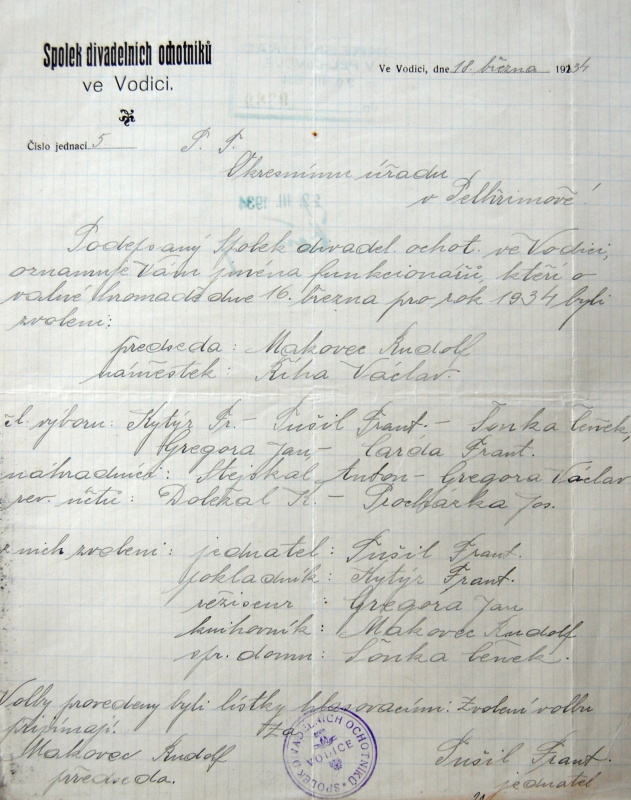 Spolek divadelních ochotníků
ve Vodici.
Ve Vodici, dne 18. března 1934
Číslo jednací 5
P. T.
Okresnímu úřadu
v Pelhřimově!
22. III. 1934
Podepsaný Spolek divadel. ochot. ve Vodici,
oznamuje Vám jména funkcionářů, kteří o
valné hromadě dne 16. března pro rok 1934 byli
zvoleni:
předseda: Makovec Rudolf
náměstek: Říha Václav.
čl. výboru: Kytýr Fr. - Tušil Frant. - Sonka Čeněk,
Gregora Jan - Čarda Frant.
náhradníci: Stejskal Anton - Gregora Václav
rev. účtů: Doležal K. - Procházka Jos.
z nich zvoleni: jednatel: Tušil Frant.
pokladník: Kytýr Frant.
režiseur: Gregora Jan
knihovník: Makovec Rudolf
spr. domu: Sonka Čeněk.
Volby provedeny byli lístky hlasovacími: Zvolení volbu
přijímají.
Za
Makovec Rudolf
předseda.
SPOLEK DIVADELNÍCH OCHOTNÍKŮ
VODICE
Tušil Frant.
jednatel